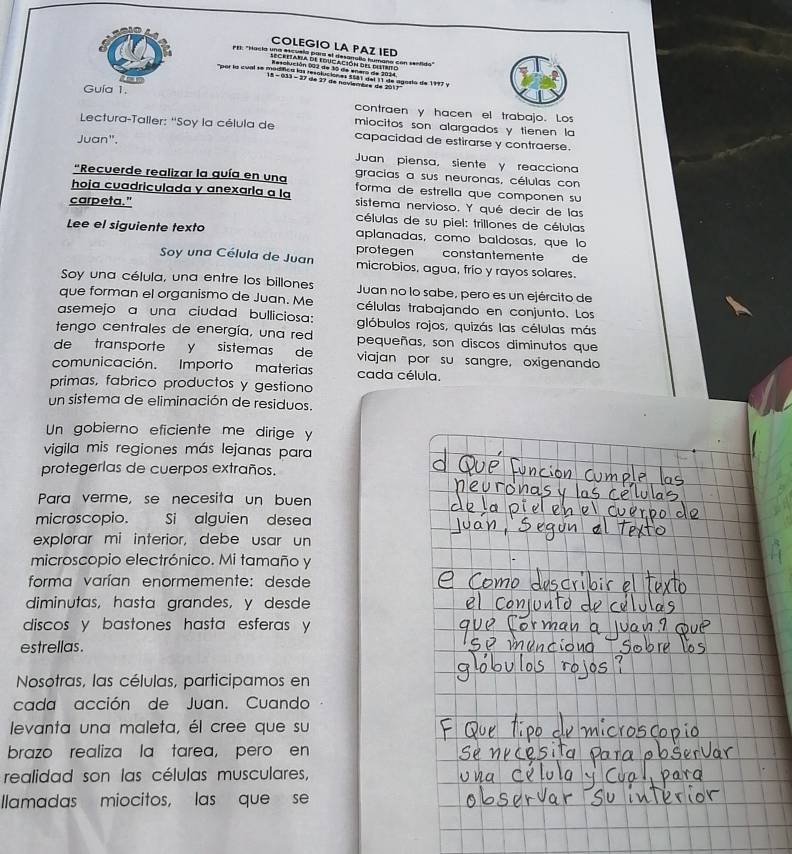 COLEGIO LA PAZ IED
PEI: "Hacia una escuela para el desarrollo humano con sentido"
SECRETARIA DE EDUCACIÓN DEL DISTRITO
Resolución 002 de 30 de enero de 2024,
"por la cual se modifica las resoluciones 5581 del 11 de agosto de 1997 y
18 - 033 - 27 de 27 de noviembre de 2017"
Guía 1.
Lectura-Taller: "Soy la célula de
Juan".
"Recuerde realizar la guía en una
hoja cuadriculada y anexarla a la
carpeta."
Lee el siguiente texto
Soy una Célula de Juan
Soy una célula, una entre los billones
que forman el organismo de Juan. Me
asemejo a una ciudad bulliciosa:
tengo centrales de energía, una red
de transporte y sistemas de
comunicación. Importo materias
primas, fabrico productos y gestiono
un sistema de eliminación de residuos.
Un gobierno eficiente me dirige y
vigila mis regiones más lejanas para
protegerlas de cuerpos extraños.
Para verme, se necesita un buen
microscopio. Si alguien desea
explorar mi interior, debe usar un
microscopio electrónico. Mi tamaño y
forma varían enormemente: desde
diminutas, hasta grandes, y desde
discos y bastones hasta esferas y
estrellas.
Nosotras, las células, participamos en
cada acción de Juan. Cuando
levanta una maleta, él cree que su
brazo realiza la tarea, pero en
realidad son las células musculares,
llamadas miocitos, las que se
contraen y hacen el trabajo. Los
miocitos son alargados y tienen la
capacidad de estirarse y contraerse.
Juan piensa, siente y reacciona
gracias a sus neuronas, células con
forma de estrella que componen su
sistema nervioso. Y qué decir de las
células de su piel: trillones de células
aplanadas, como baldosas, que lo
protegen constantemente de
microbios, agua, frío y rayos solares.
Juan no lo sabe, pero es un ejército de
células trabajando en conjunto. Los
glóbulos rojos, quizás las células más
pequeñas, son discos diminutos que
viajan por su sangre, oxigenando
cada célula.
d Qué función cumple las
neuronas y las células
de la piel en el cuerpo de
Juan, segun el texto
e Como describir el texto
el conjunto de células
que forman a Juan? que
se menciona sobre los
glóbulos rojos?
F Que tipo de microscopio
se necesita para observar
una célula y cual, para
observar su interior